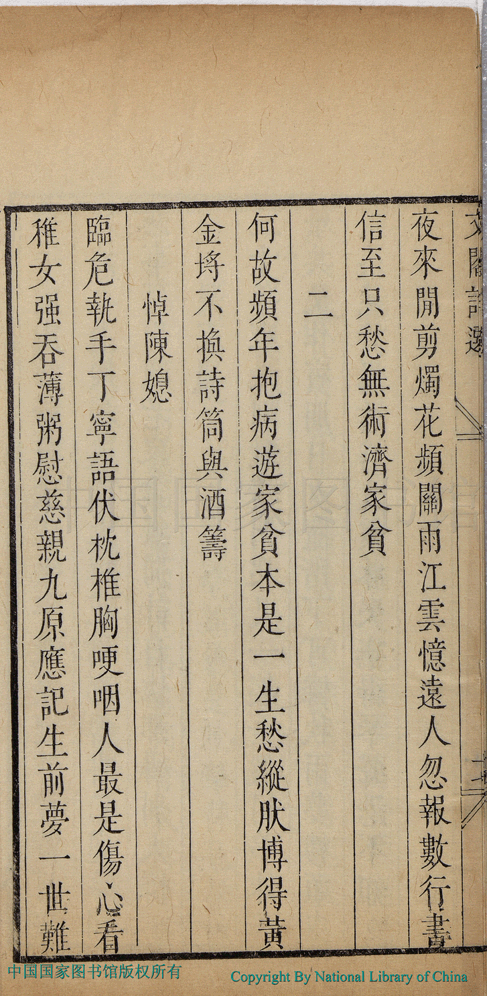 文閣詩選
夜來閒剪燭花頻關雨江雲憶遠人忽報數行書
信至只愁無術濟家貧
二
何故頻年抱病遊家貧本是一生愁縱肰博得黃
金埓不換詩筒與酒籌
悼陳媳
臨危執手丁寧語伏枕椎胸哽咽人最是傷心看
稚女强吞薄粥慰慈親九原應記生前夢一世難
中国国家图书馆版权所有
Copyright By National Library of China